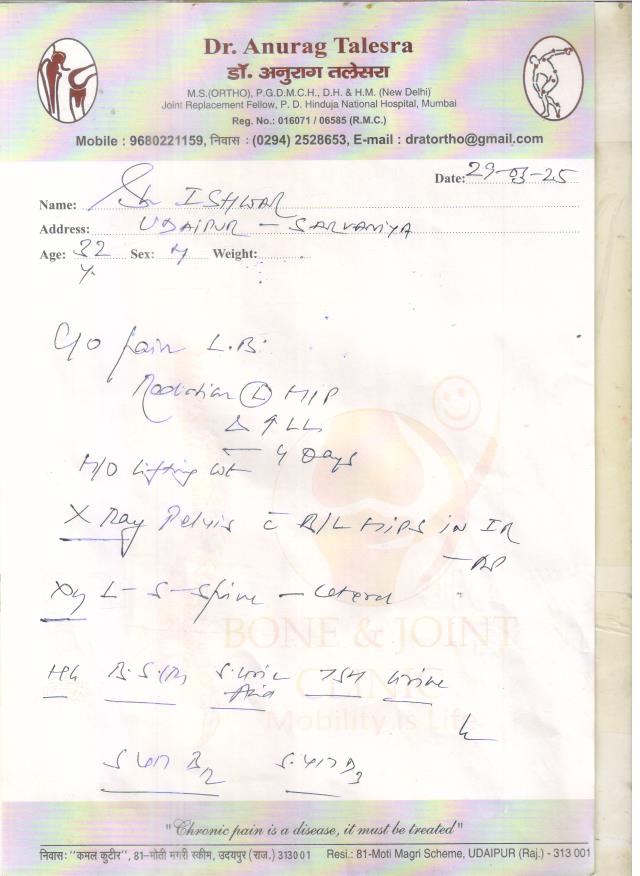 Dr. Anurag Talesra
डॉ. अनुराग तलेसरा
M.S.(ORTHO), P.G.D.M.C.H., D.H. & H.M. (New Delhi)
Joint Replacement Fellow, P. D. Hinduja National Hospital, Mumbai
Reg. No.: 016071 / 06585 (R.M.C.)
Mobile : 9680221159, निवास : (0294) 2528653, E-mail : dratortho@gmail.com
Date: 29-03-25
Name: Sh ISHWAR
Address: UDAIPUR - SARVANIYA
Age: 32 y. Sex: M Weight:
C/O Pain L.B.
Radiation (L) HIP
& LL
4 Days
H/O Lifting wt
X Ray Pelvis c̄ B/L HIPS in IR
- AP
Xy L-S-Spine - Lateral
BONE & JOINT
CLINIC
Mobility is Life
Hb B.S.(R) S. Uric Acid TSH Urine
S Vit B12 S. Vit D3
"Chronic pain is a disease, it must be treated"
निवास: "कमल कुटीर", 81-मोती मगरी स्कीम, उदयपुर (राज.) 313001 Resi.: 81-Moti Magri Scheme, UDAIPUR (Raj.) - 313 001